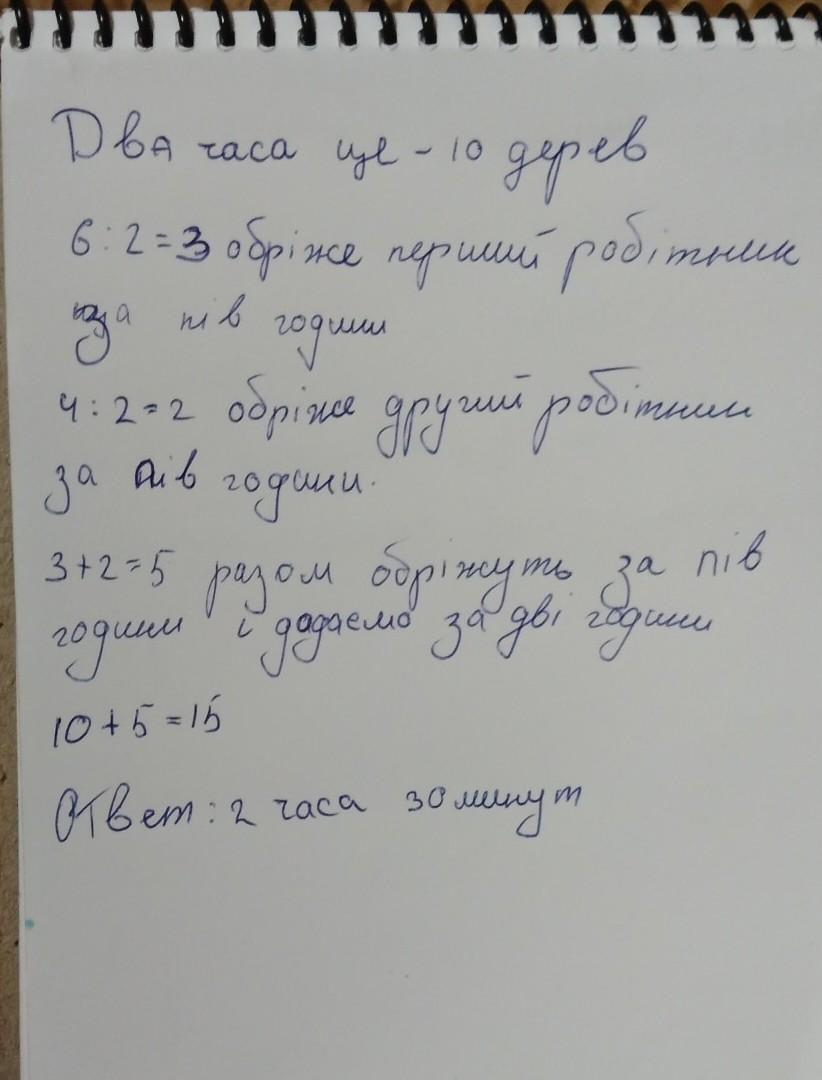 Два часа це - 10 дерев
6 : 2 = 3 обріже перший робітник
за пів години
4 : 2 = 2 обріже другий робітник
за пів години.
3 + 2 = 5 разом обріжуть за пів
години і додаємо за дві години
10 + 5 = 15
Ответ : 2 часа 30 минут